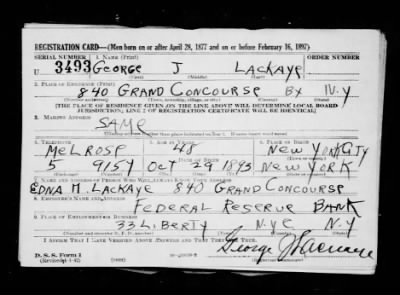 REGISTRATION CARD—(Men born on or after April 28, 1877 and on or before February 16, 1897)
SERIAL NUMBER 1. NAME (Print) ORDER NUMBER
U 3493 GEORGE J LACKAYE
(First) (Middle) (Last)
2. PLACE OF RESIDENCE (Print)
840 GRAND CONCOURSE BX N.Y
(Number and street) (Town, township, village, or city) (County) (State)
[THE PLACE OF RESIDENCE GIVEN ON THE LINE ABOVE WILL DETERMINE LOCAL BOARD
JURISDICTION; LINE 2 OF REGISTRATION CERTIFICATE WILL BE IDENTICAL]
3. MAILING ADDRESS
SAME
4. TELEPHONE 5. AGE IN YEARS 6. PLACE OF BIRTH
MELROSE 48 NEW YORK CITY
DATE OF BIRTH
5 9157 OCT 29 1893 NEW YORK
7. NAME AND ADDRESS OF PERSON WHO WILL ALWAYS KNOW YOUR ADDRESS
EDNA M. LACKAYE 840 GRAND CONCOURSE
8. EMPLOYER'S NAME AND ADDRESS
FEDERAL RESERVE BANK
9. PLACE OF EMPLOYMENT OR BUSINESS
33 LIBERTY NYC N.Y
I AFFIRM THAT I HAVE VERIFIED ABOVE ANSWERS AND THAT THEY ARE TRUE.
D. S. S. Form 1
George J Lackaye